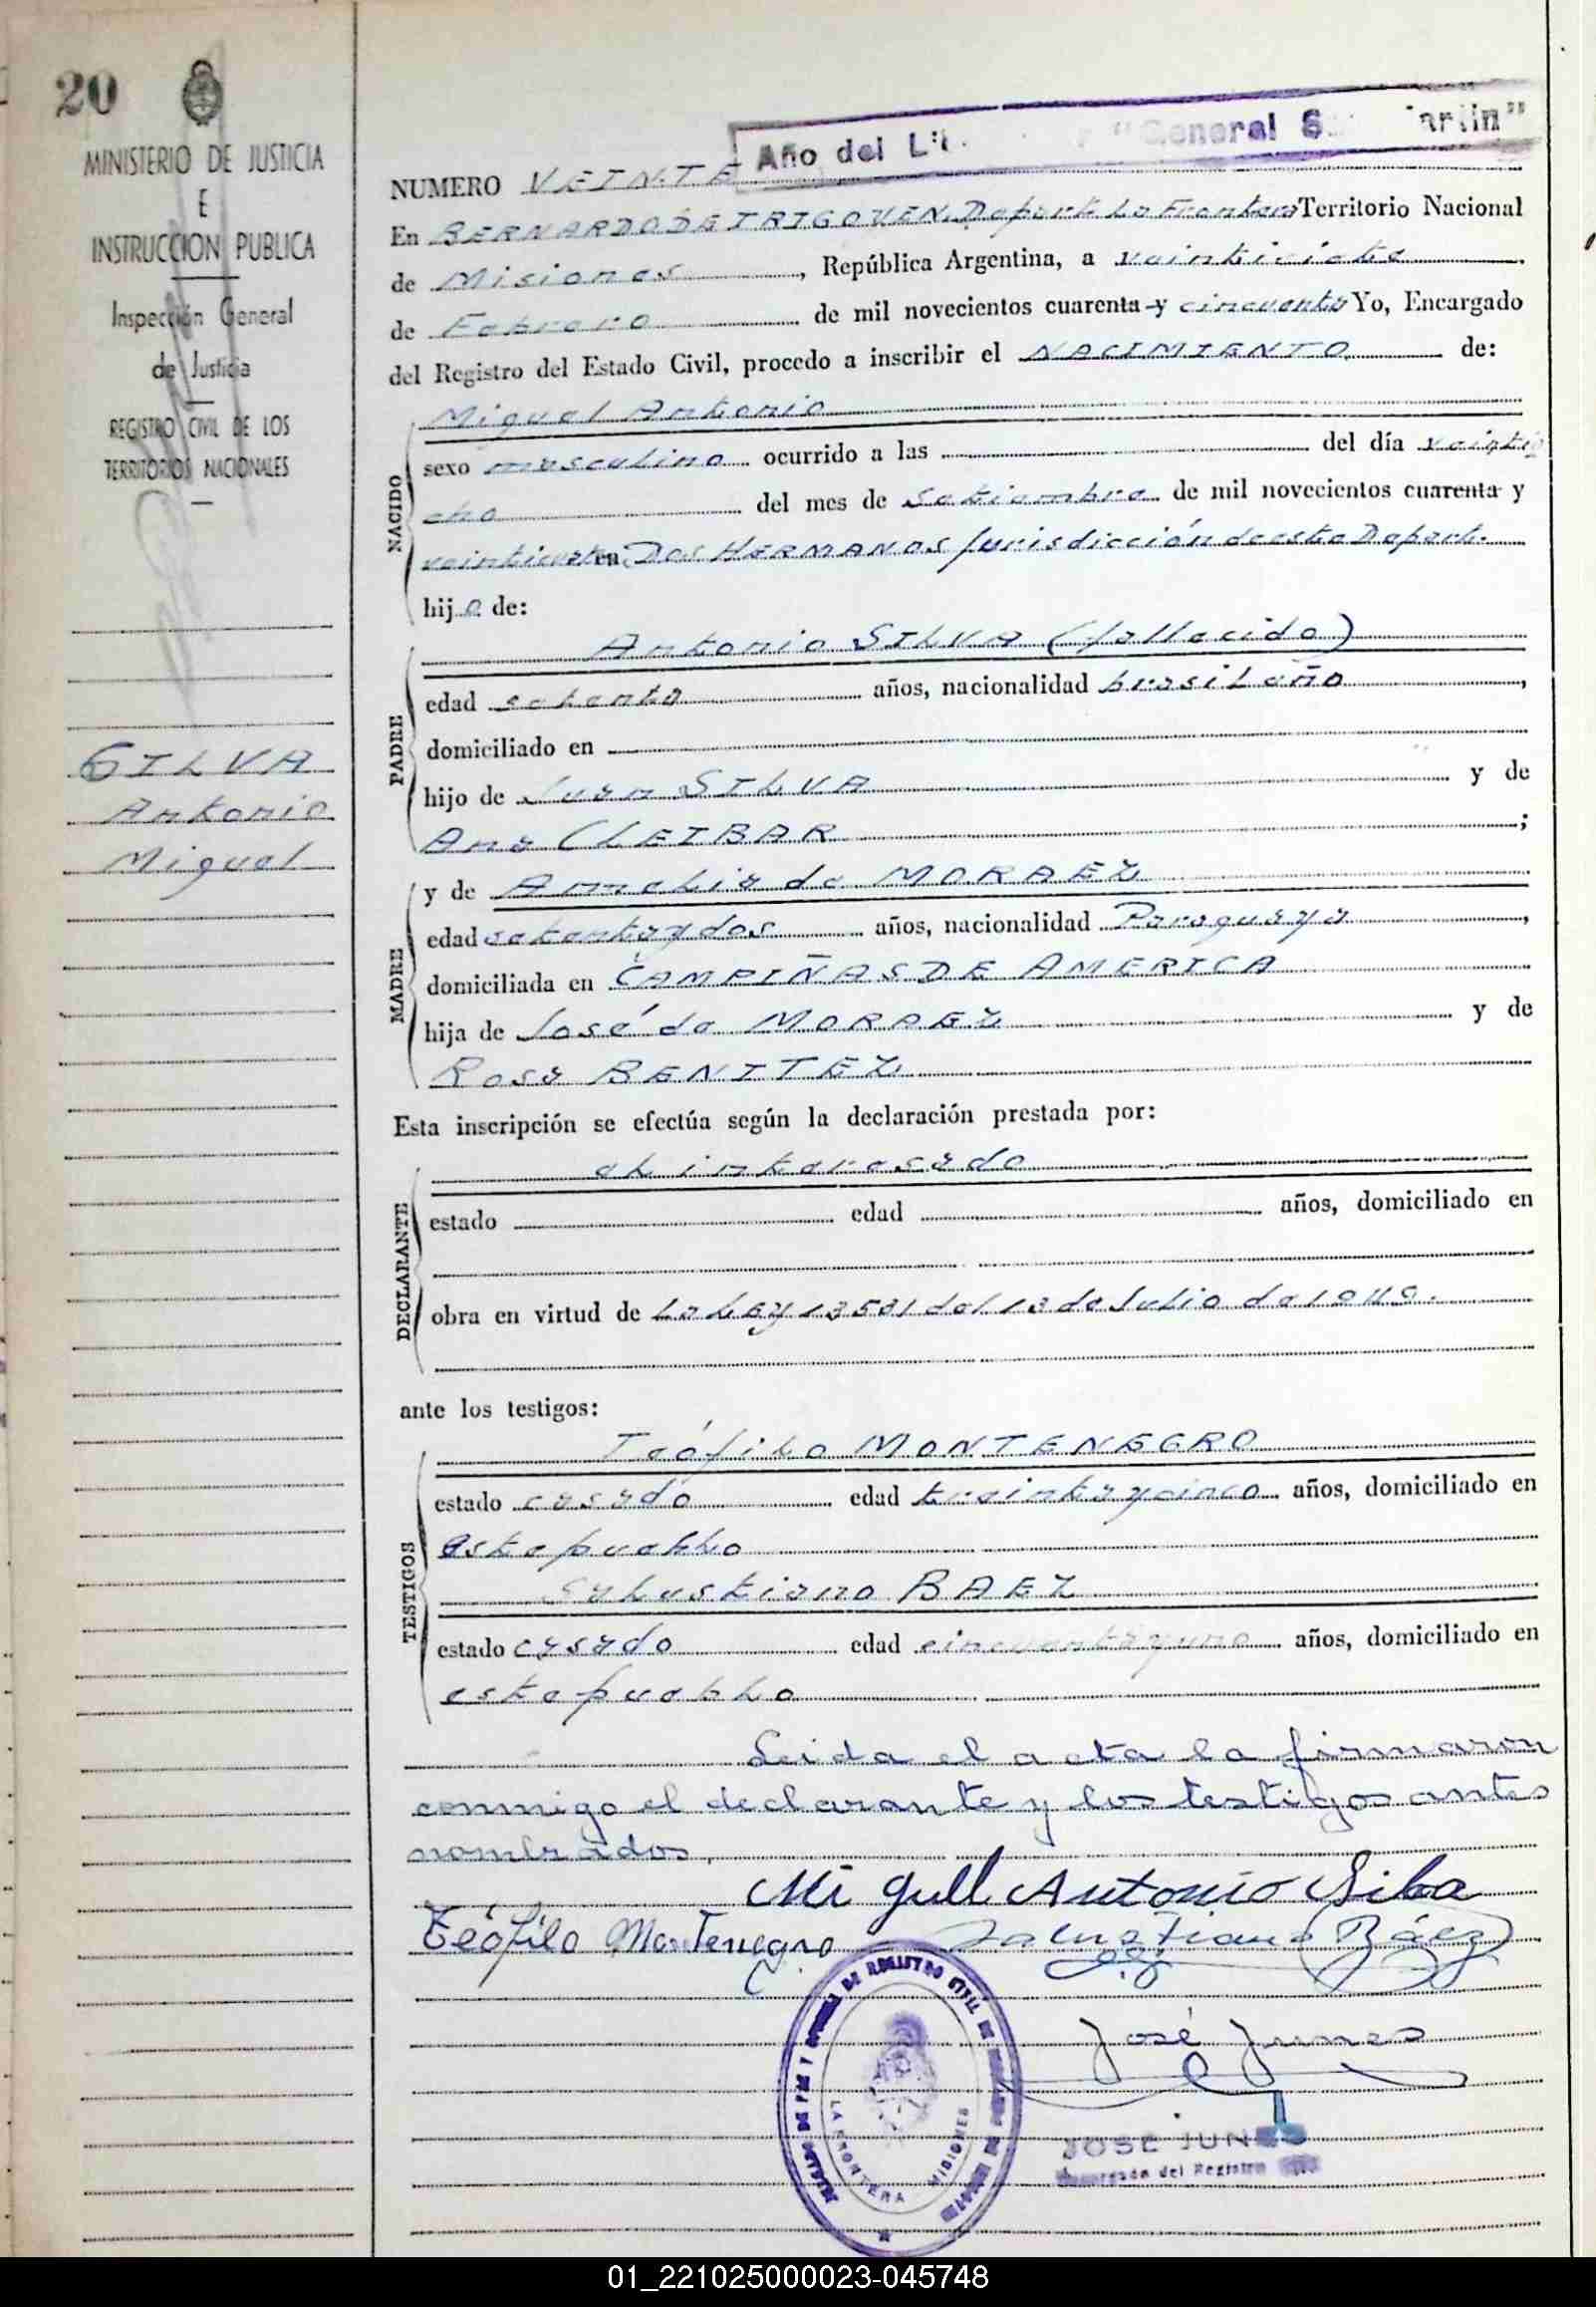 20
MINISTERIO DE JUSTICIA
E
INSTRUCCION PUBLICA
Inspección General
de Justicia
REGISTRO CIVIL DE LOS
TERRITORIOS NACIONALES
SILVA
Antonio
Miguel
Año del "General S artin"
NUMERO VEINTE
En BERNARDO DE IRIGOYEN. Depart. La Frontera Territorio Nacional
de Misiones, República Argentina, a veintisiete
de Febrero de mil novecientos cuarenta y cincuenta Yo, Encargado
del Registro del Estado Civil, procedo a inscribir el NACIMIENTO de:
NACIDO
Miguel Antonio
sexo masculino ocurrido a las del día veintio
cho del mes de Setiembre de mil novecientos cuarenta y
en DOS HERMANOS Jurisdicción de este Depart.
hijo de:
PADRE
Antonio SILVA (fallecido)
edad años, nacionalidad brasileño,
domiciliado en
hijo de Juan SILVA y de
Ana CLEIBAR;
MADRE
y de Amelia de MORAEZ
edad setenta y dos años, nacionalidad Paraguaya,
domiciliada en CAMPIÑAS DE AMERICA
hija de José de MORAEZ y de
Rosa BENITEZ
Esta inscripción se efectúa según la declaración prestada por:
DECLARANTE
el interesado
estado edad años, domiciliado en
obra en virtud de la Ley 13581 del 13 de Julio de
ante los testigos:
TESTIGOS
Teófilo MONTENEGRO
estado casado edad treinta y cinco años, domiciliado en
este pueblo
Salustiano BAEZ
estado casado edad cincuenta y uno años, domiciliado en
este pueblo
Leida el acta la firmaron
conmigo el declarante y los testigos antes
nombrados.
Mi guell Antonio Silba
Teófilo Montenegro Salustiano Báez
José Junes
JUZGADO DE PAZ Y OFICINA DE REGISTRO CIVIL DE
LA FRONTERA MISIONES
JOSE JUNES
Encargado del Registro
01_221025000023-045748